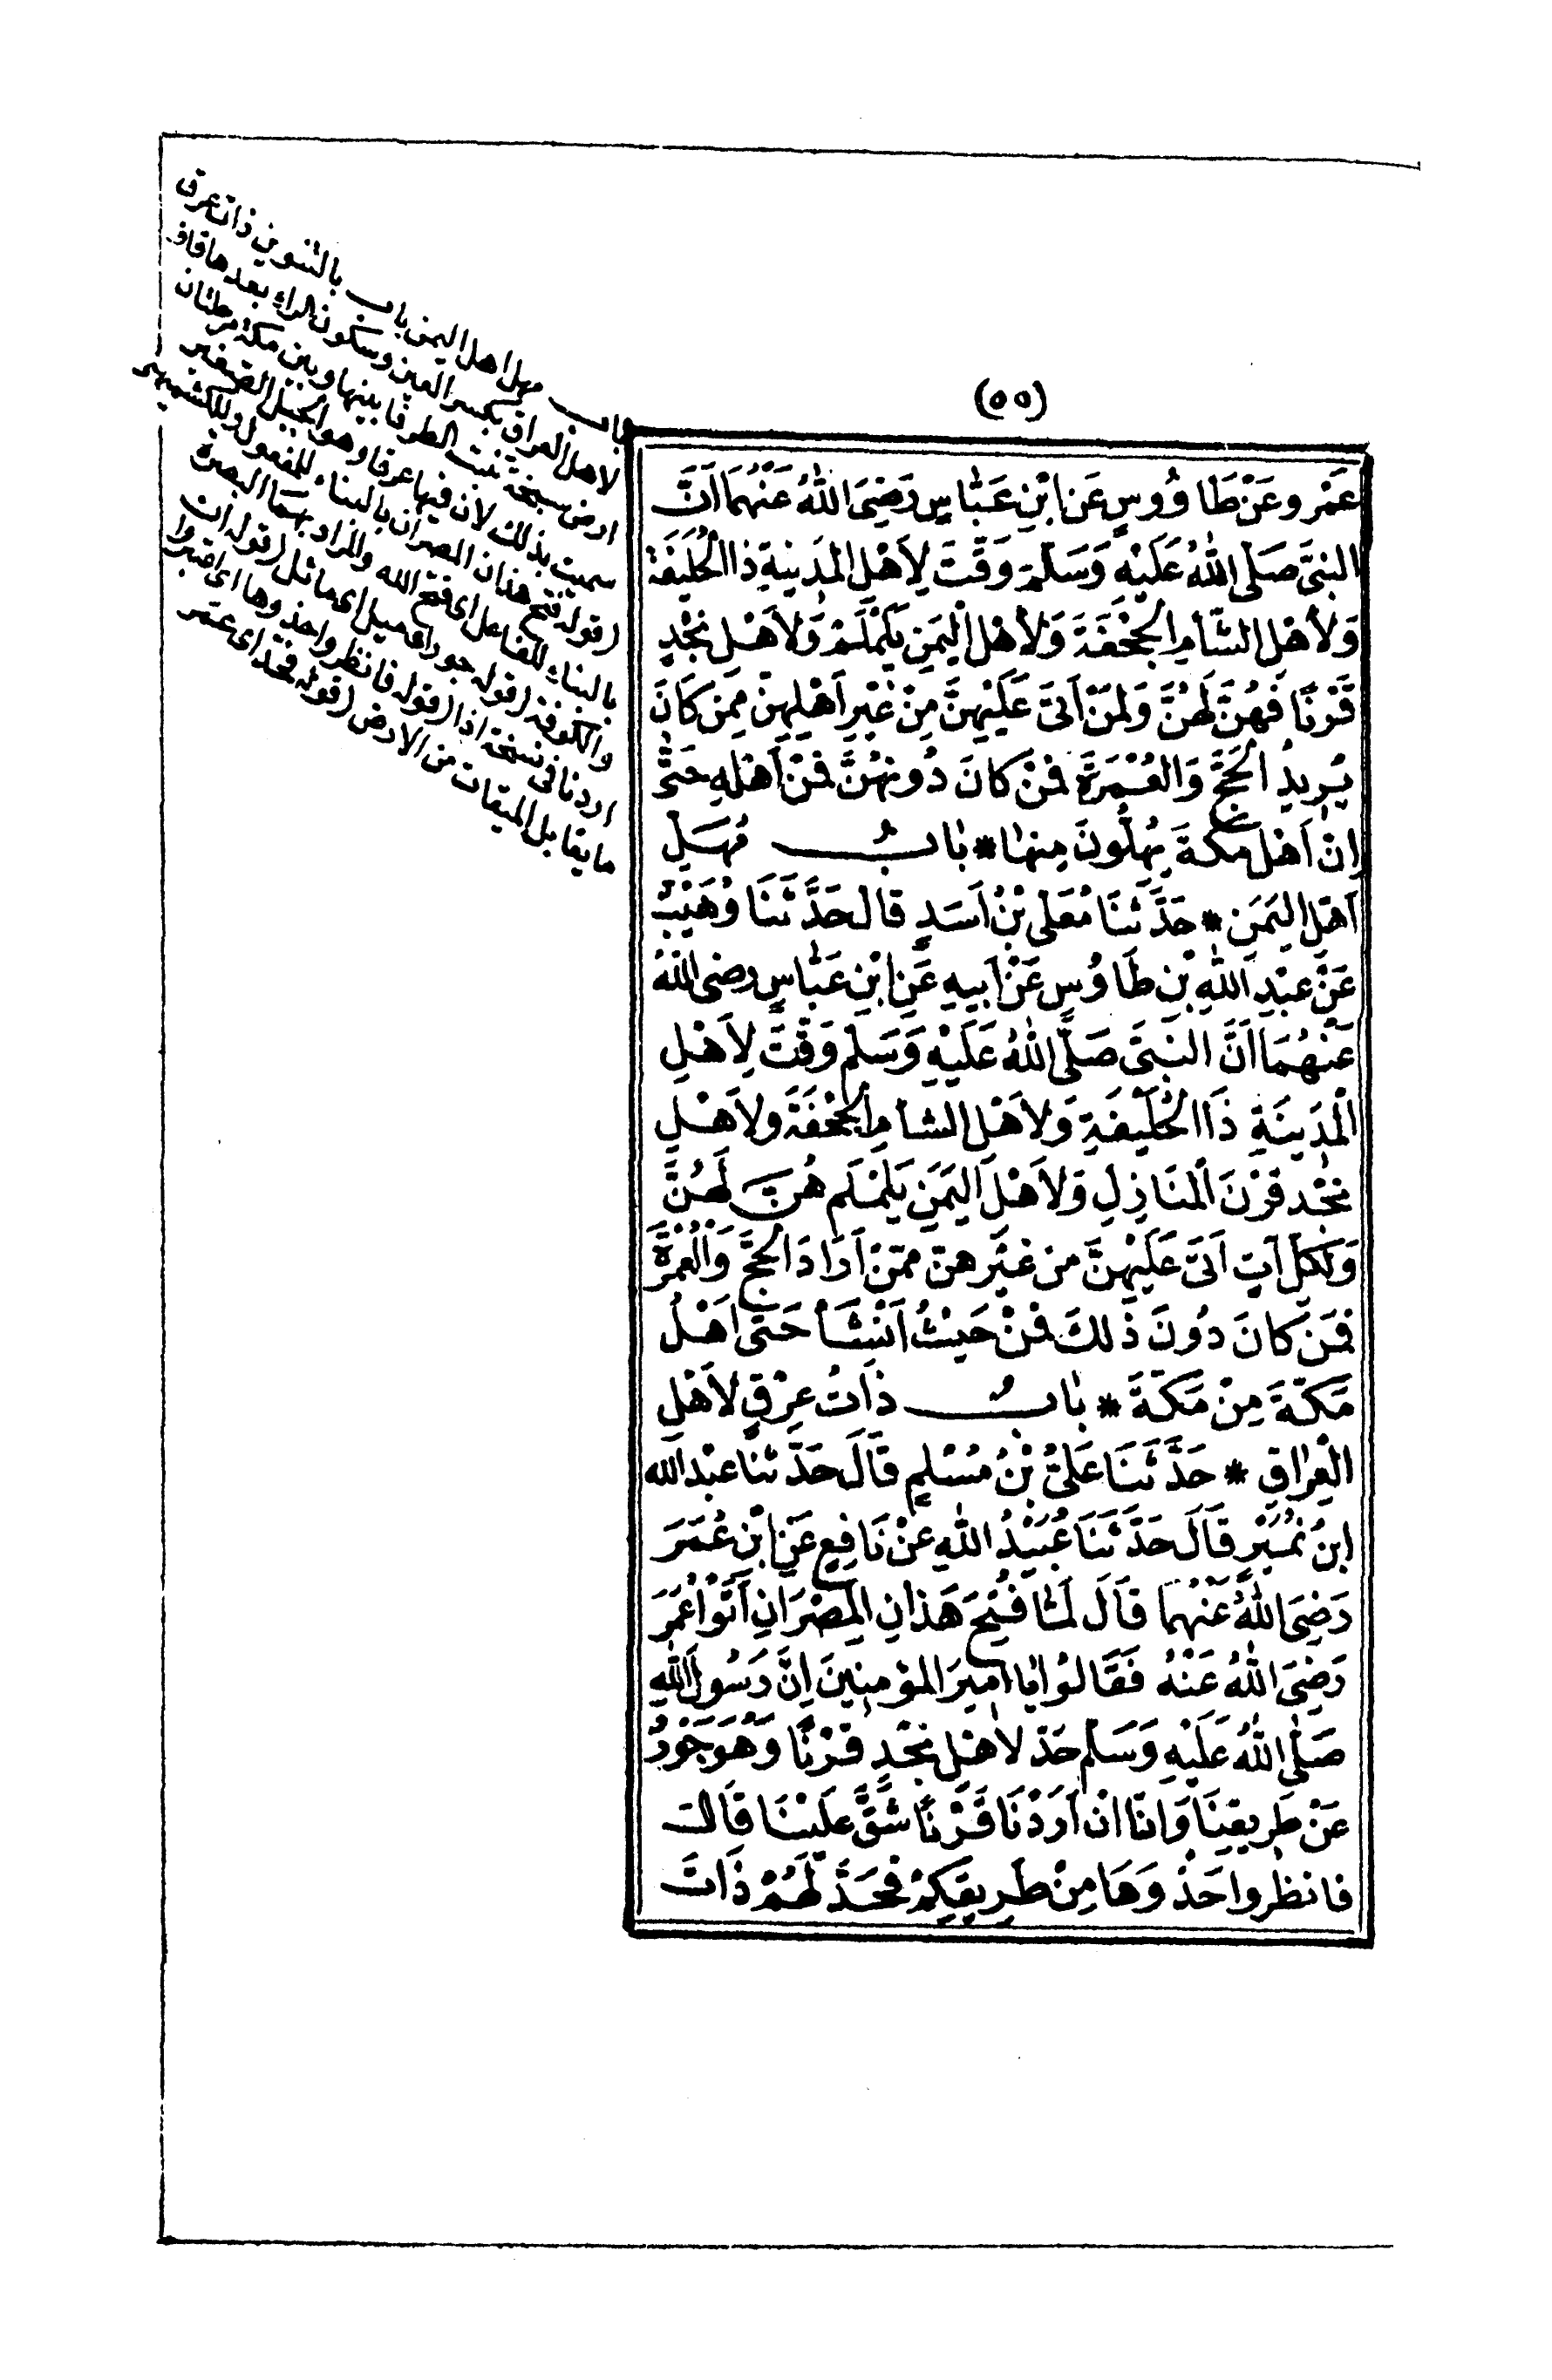 (٥٥)
عَمْرٍو عَنْ طَاوُوسٍ عَنِ ابْنِ عَبَّاسٍ رَضِيَ اللهُ عَنْهُمَا اَنَّ
النبىَّ صَلى اللهُ عَلَيْهِ وَسَلمَ وَقَّتَ لِاَهْلِ المَدِينةِ ذا الْحُلَيْفَةِ
وَلاَهْلِ الشَّامِ الْجُحْفَةَ وَلاَهْلِ الْيَمَنِ يَلَمْلَمَ وَلاَهْلِ نَجْدٍ
قَرْنًا فَهُنَّ لَهُنَّ وَلِمَنْ اَتَى عَلَيْهِنَّ مِنْ غَيْرِ اَهْلِهِنَّ مِمَنْ كَانَ
يُرِيدُ الْحَجَّ وَالْعُمْرَةَ فَمَنْ كَانَ دُونَهُنَّ فَمِنْ اَهْلِهِ حَتَّى
اِنَّ اَهْلَ مَكةَ يُهِلُّونَ مِنها * بابُ مُهَلِّ
اَهْلِ اليَمَنِ * حَدَّثَنَا مُعَلى بْنُ اَسَدٍ قال حَدَّثَنَا وُهَيْبٌ
عَنْ عبْدِ اللهِ بْنِ طَاوُسٍ عَنْ اَبِيهِ عَنِ ابْنِ عَبَّاسٍ رضى اللهُ
عَنْهُمَا اَنَّ النَبِىَّ صَلَّى اللهُ عَلَيْهِ وَسَلمَ وَقَّتَ لِاَهْلِ
الْمَدِينَةِ ذَا الْحُلَيْفَةِ وَلاَهْلِ الشامِ الْجُحْفَةَ ولاَهْلِ
نَجْدٍ قَرْنَ الْمَنَازِلِ وَلاَهْلِ الْيَمَنِ يَلَمْلَمَ هُنَّ لَهُنَّ
وَلِكلِّ آتٍ اَتَى عَلَيْهِنَّ من غَيْرِهنّ ممّنْ اَرَادَ الْحَجَّ وَالْعُمْرَةَ
فَمَنْ كَانَ دُونَ ذَلكَ فَمِنْ حَيْثُ اَنْشَأَ حَتَّى اَهْلُ
مَكّةَ مِنْ مَكّةَ * بابُ ذَاتُ عِرْقٍ لاَهْلِ
الْعِرَاقِ * حَدَّثَنَا عَلِىُّ بْنُ مُسْلِمٍ قَالَ حَدّثنا عبْد الله
ابنُ نُمَيْرٍ قَالَ حَدَّثَنَا عُبَيْدُ اللهِ عَنْ نَافِعٍ عَنِ ابْنِ عُمَرَ
رَضِىَ اللهُ عَنْهُمَا قَالَ لَمّا فُتِحَ هَذانِ المِصْرَانِ اَتَوْا عُمَرَ
رَضِىَ اللهُ عَنْهُ فَقَالوُا يا اَمِيرَ المؤمِنِينَ اِنَّ رَسُولَ اللهِ
صَلَّى اللهُ عَلَيْهِ وَسَلّمَ حَدّ لاَهْلِ نَجْدٍ قَرْنًا وَهُوَ جَوْرٌ
عَنْ طَرِيقِنَا وَاِنّا اِنْ اَرَدْنَا قَرْنًا شَقَّ عَلَيْنَا قَالَ
فانظرُوا حَذْوَهَا مِنْ طَرِيقِكمْ فَحَدَّ لَهُمْ ذَاتَ
باب مهل اهل اليمن باب بالتنوين ذات عرق
لاهل العراق بكسر العين وسكون الراء بعدها قاف
ارض سبخة تنبت الطرفا بينها وبين مكة مرحلتان
سميت بذلك لان فيها عرقا وهو الجبل الصغير
(قوله فتح هذان المصران بالبناء للمفعول وللكشميهنى
بالبناء للفاعل اى فتح الله والمراد بهما البصرة
والكوفة (قوله جور اى ميل اى مائل (قوله ان
اردنا فى نسخة اذا (قوله فانظروا حذوها اى اعتبروا
ما يقابل الميقات من الارض (قوله فحد اى عمر